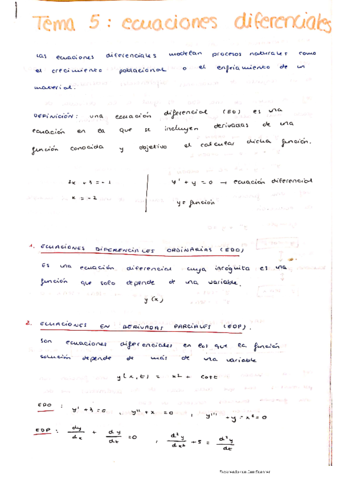 Tema 5: ecuaciones diferenciales
Las ecuaciones diferenciales modelan procesos naturales como
el crecimiento poblacional o el enfriamiento de un
material.
DEFINICIÓN: una ecuación diferencial (ED) es una
ecuación en la que se incluyen derivadas de una
función conocida y objetivo el calcular dicha función.
y' + y = 0 → ecuación diferencial
x = -2
y = función
1. ECUACIONES DIFERENCIALES ORDINARIAS (EDO)
Es una ecuación diferencial cuya incógnita es una
función que solo depende de una variable.
y(x)
2. ECUACIONES EN DERIVADAS PARCIALES (EDP).
Son ecuaciones diferenciales en las que la función
solución depende de más de una variable
y(x,t) = x² + cost
EDO: y' + 3 = 0, y'' + x = 0, y''' + y = x² = 0
EDP: dy/dx + dy/dt = 0, d²y/dx² + 5 = d²y/dt